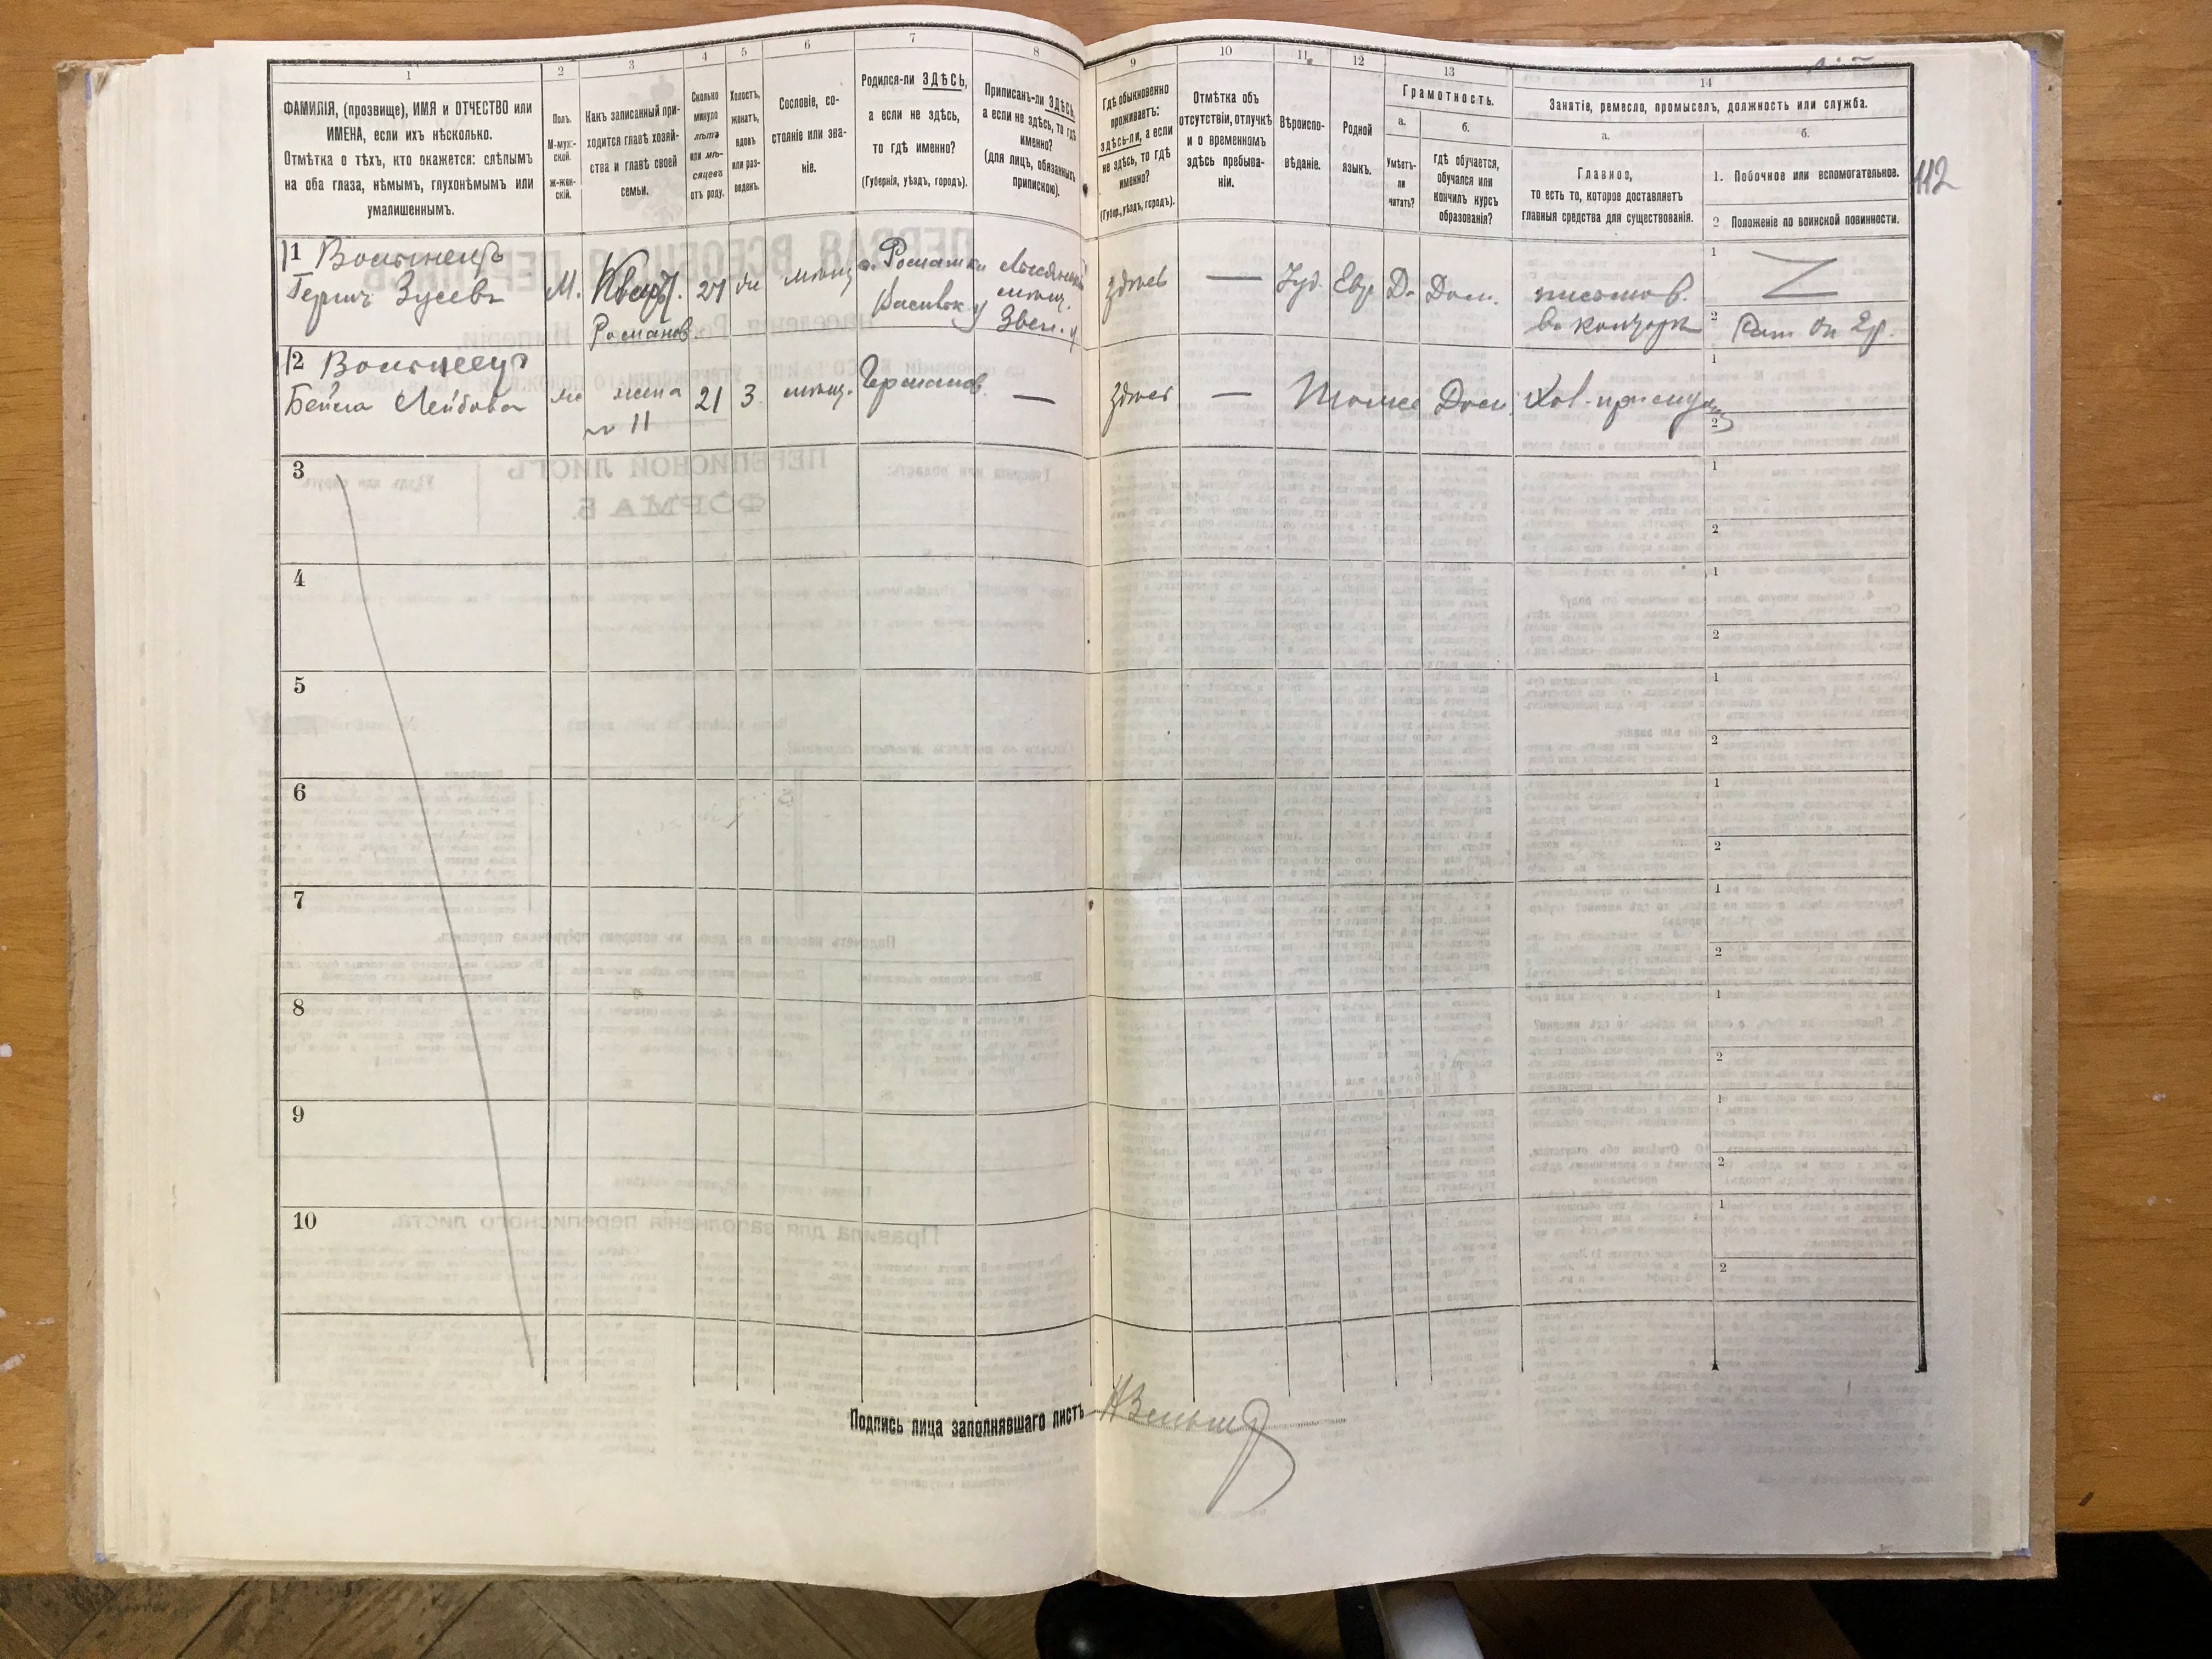 1
2
3
4
5
6
7
8
9
10
11
12
13
14
ФАМИЛІЯ, (прозвище), ИМЯ и ОТЧЕСТВО или
ИМЕНА, если ихъ нѣсколько.
Отмѣтка о тѣхъ, кто окажется: слѣпымъ
на оба глаза, нѣмымъ, глухонѣмымъ или
умалишеннымъ.
Полъ.
М-муж-
ской.
ж-жен-
скій.
Какъ записанный при-
ходится главѣ хозяй-
ства и главѣ своей
семьи.
Сколько
минуло
лѣтъ
или мѣ-
сяцевъ
отъ роду.
Холостъ,
женатъ,
вдовъ
или раз-
веденъ.
Сословіе, со-
стояніе или зва-
ніе.
Родился-ли ЗДѢСЬ,
а если не здѣсь,
то гдѣ именно?
(Губернія, уѣздъ, городъ).
Приписанъ-ли ЗДѢСЬ,
а если не здѣсь, то гдѣ
именно?
(для лицъ, обязанныхъ
припискою).
Гдѣ обыкновенно
проживаетъ:
здѣсь-ли, а если
не здѣсь, то гдѣ
именно?
(Губер., уѣздъ, городъ).
Отмѣтка объ
отсутствіи, отлучкѣ
и о временномъ
здѣсь пребыва-
ніи.
Вѣроиспо-
вѣданіе.
Родной
языкъ.
Грамотность.
а.
Умѣетъ-
ли
читать?
б.
гдѣ обучается,
обучался или
кончилъ курсъ
образованія?
Занятіе, ремесло, промыселъ, должность или служба.
а.
Главное,
то есть то, которое доставляетъ
главныя средства для существованія.
б.
1. Побочное или вспомогательное.
2 Положеніе по воинской повинности.
112
11 Волынецъ
Гершъ Зусевъ
М.
Романов.
27
мѣщ
с. Ромашки
Васильк. у
мѣщ.
Звен. у
здѣсь
—
Іуд
Евр
Да
Дом.
1
2
12 Волынецъ
Бейла Лейбова
жена
11
21
З.
мѣщ.
—
здѣсь
—
Тоже
Дом.
1
2
3
1
2
4
1
2
5
1
2
6
1
2
7
1
2
8
1
2
9
1
2
10
1
2
Подпись лица заполнявшаго листъ